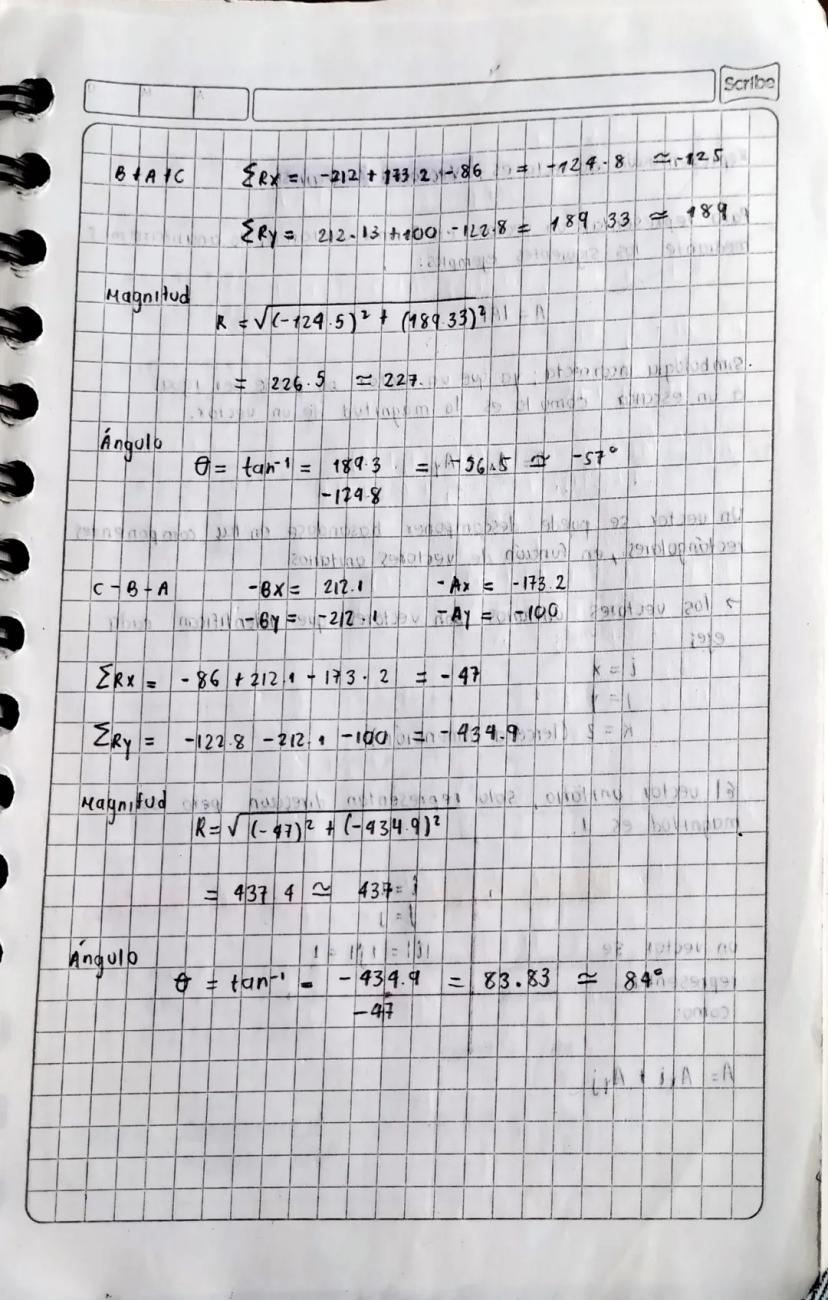 Scribe
B + A + C ΣRx = -212 + 173.2 - 86 = -124.8 ≃ -125
ΣRy = 212.13 + 100 - 122.8 = 189.33 ≃ 189
Magnitud
R = √(-124.5)² + (189.33)²
= 226.5 ≃ 227
Ángulo
θ = tan⁻¹ = 189.3 = -56.5 ≃ -57°
-124.8
C - B - A -Bx = 212.1 -Ax = -173.2
-By = -212.1 -Ay = -100
ΣRx = -86 + 212.1 - 173.2 = -47
ΣRy = -122.8 - 212.1 - 100 = -434.9
Magnitud
R = √(-47)² + (-434.9)²
= 437.4 ≃ 437
Ángulo
θ = tan⁻¹ = -434.9 = 83.83 ≃ 84°
-47